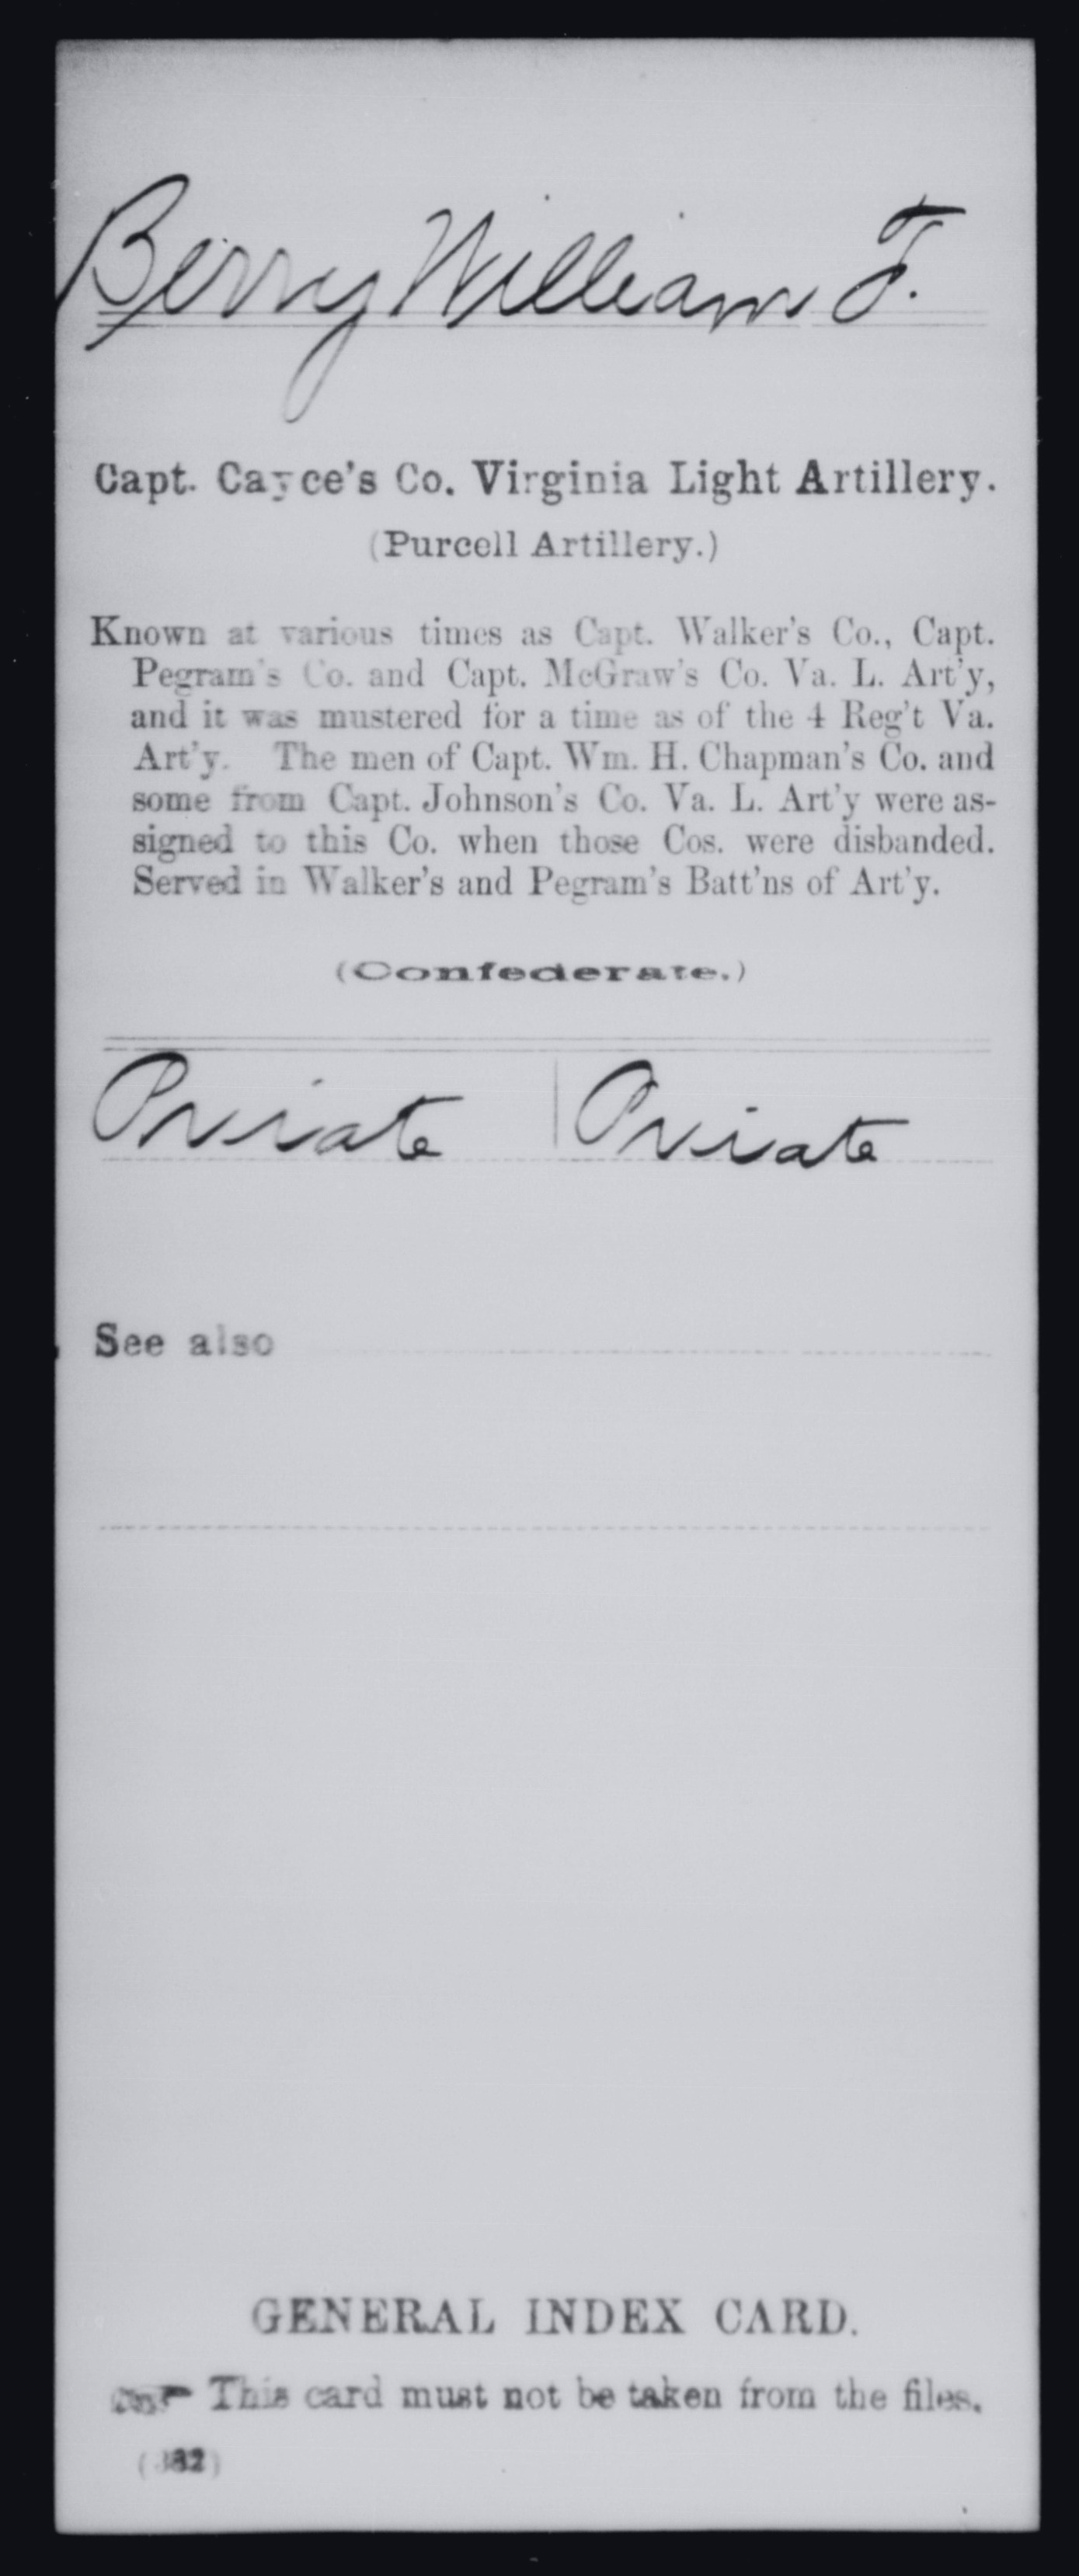 Berry William F.
Capt. Cayce's Co. Virginia Light Artillery.
(Purcell Artillery.)
Known at various times as Capt. Walker's Co., Capt.
Pegram's Co. and Capt. McGraw's Co. Va. L. Art'y,
and it was mustered for a time as of the 4 Reg't Va.
Art'y. The men of Capt. Wm. H. Chapman's Co. and
some from Capt. Johnson's Co. Va. L. Art'y were as-
signed to this Co. when those Cos. were disbanded.
Served in Walker's and Pegram's Batt'ns of Art'y.
(Confederate.)
Private | Private
See also
GENERAL INDEX CARD.
This card must not be taken from the files.